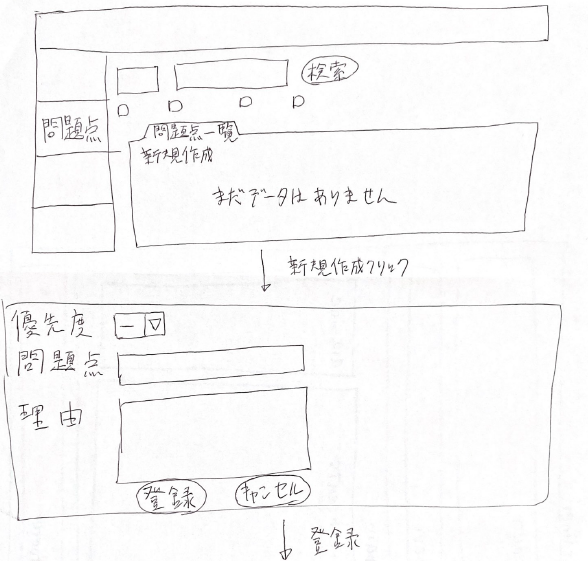 検索
問題点
問題点一覧
新規作成
まだデータはありません
新規作成クリック
優先度 ー ▽
問題点
理由
登録 キャンセル
登録